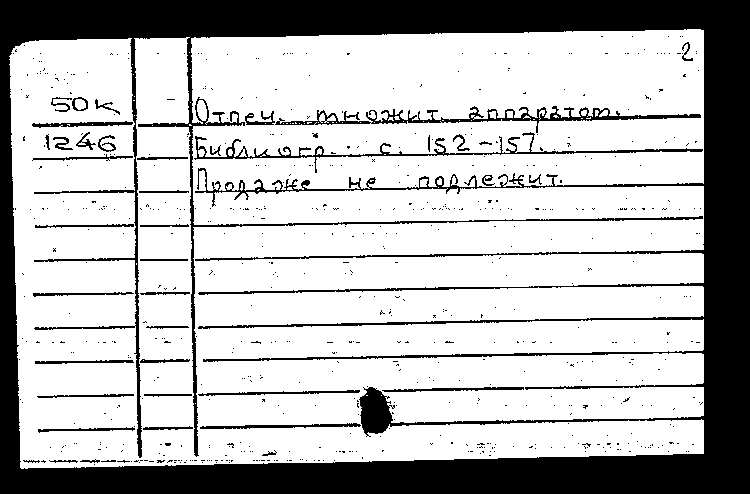 2
50к Отпеч. множит. аппаратом.
1246 Библиогр.: с. 152-157.
Продаже не подлежит.